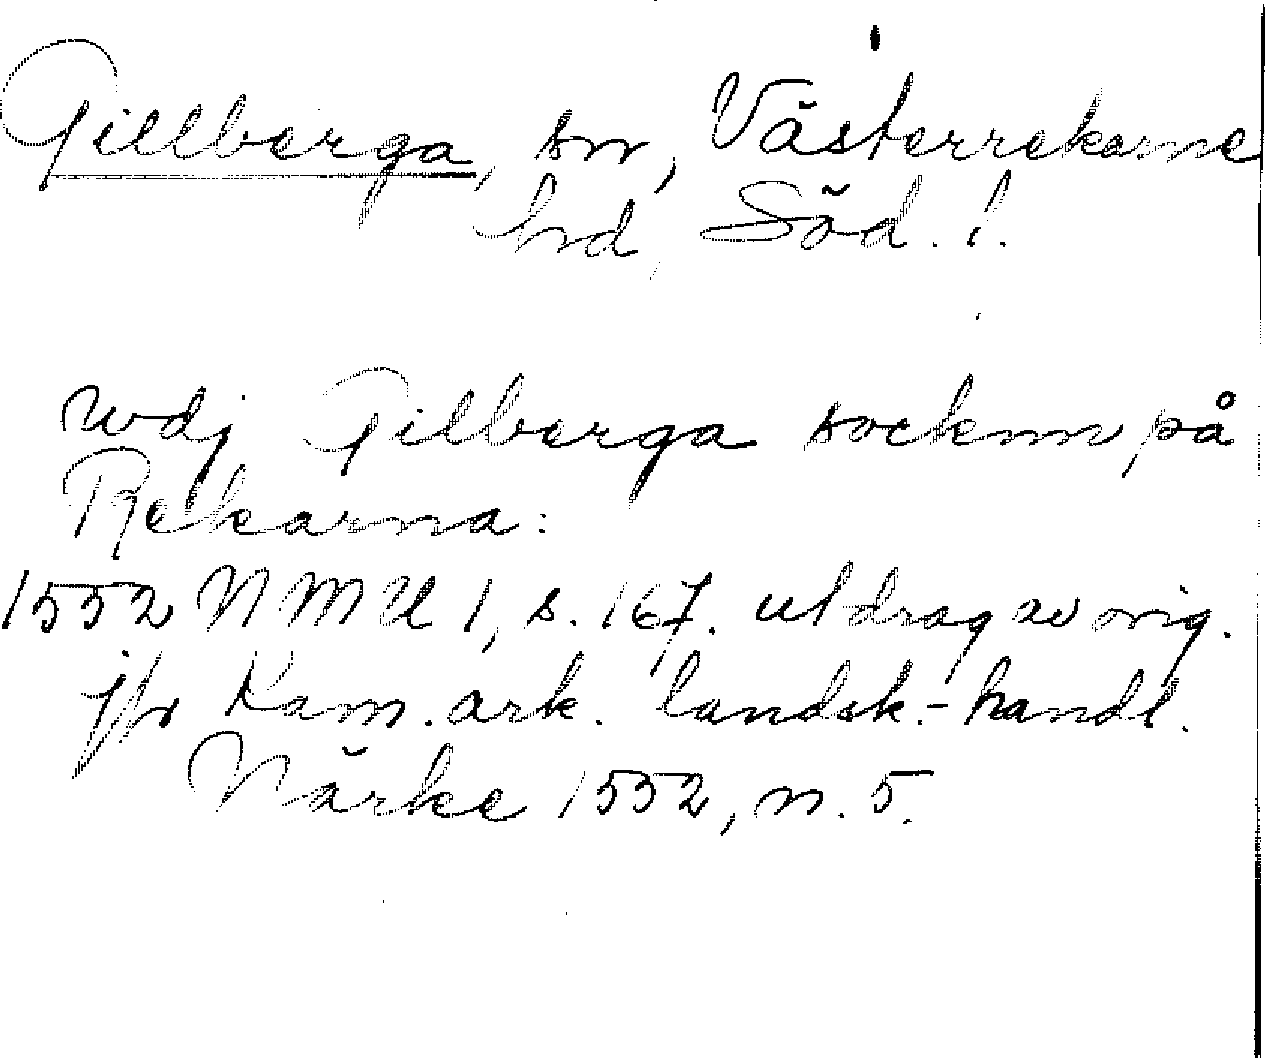 Gillberga, sn, Västerrekarne
hd, Söd. l.
wdj Gilberga socknn på
Rekarna:
1552 NMU 1, s. 167. utdrag av orig.
jfr Kam. ark. landsk.-handl.
Närke 1552, n. 5.